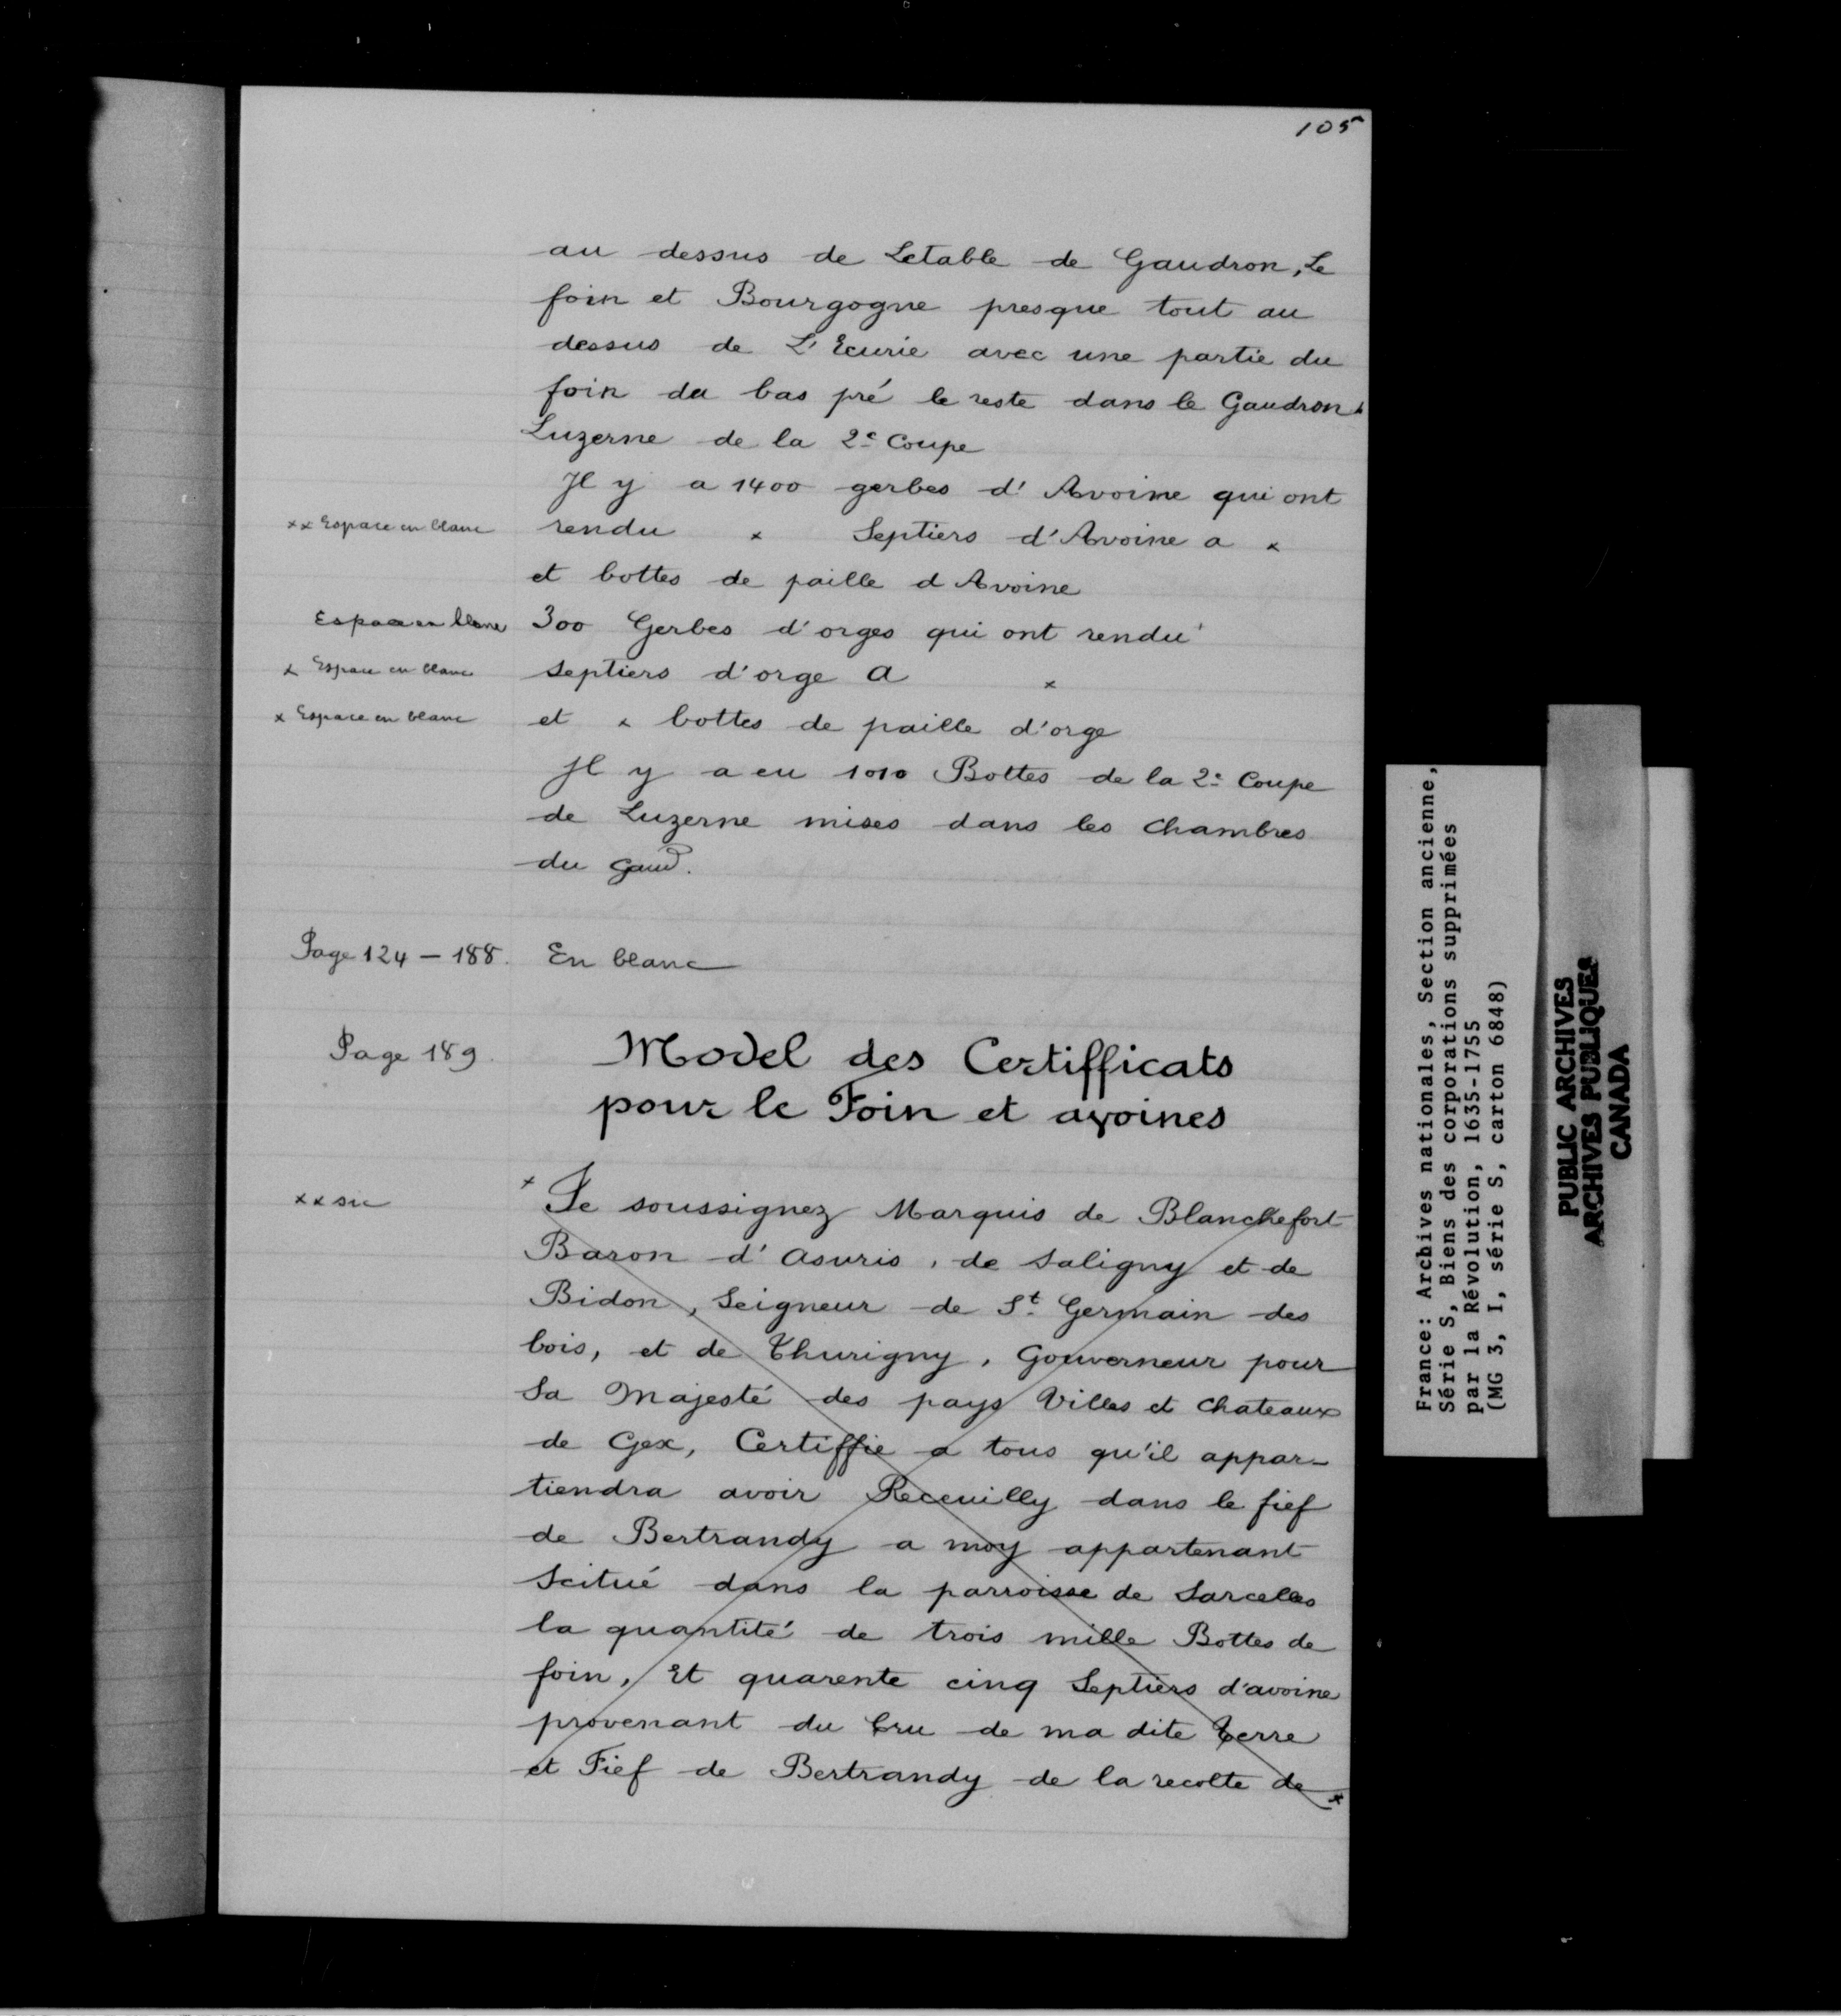 105
au dessus de Letable de Gaudron, Le
foin et Bourgogne presque tout au
dessus de L'Ecurie avec une partie du
foin du bas pré le reste dans le Gaudron
Luzerne de la 2e Coupe
Jl y a 1400 gerbes d'Avoine qui ont
xx Espace en blanc rendu x Septiers d'Avoine a x
et bottes de paille d Avoine
Espace en blanc 300 Gerbes d'orges qui ont rendu
x Espace en blanc septiers d'orge a x
x Espace en blanc et x bottes de paille d'orge
Jl y a eu 1010 Bottes de la 2e Coupe
de Luzerne mises dans les chambres
du Gaud.
Page 124 – 188. En blanc
Page 189. Model des Certifficats
pour le Foin et avoines
xx sic x Je soussignez Marquis de Blanchefort
Baron d'asuris, de saligny et de
Bidon, Seigneur de St Germain des
bois, et de Thurigny, Gouverneur pour
Sa Majesté des pays Villes et chateaux
de Gex, Certiffie a tous qu'il appar-
tiendra avoir Receuilly dans le fief
de Bertrandy a moy appartenant
Scitué dans la parroisse de Sarcelles
la quantité de trois mille Bottes de
foin, Et quarente cinq Septiers d'avoine
provenant du Cru de ma dite Terre
et Fief de Bertrandy de la recolte de x
France: Archives nationales, Section ancienne,
Série S, Biens des corporations supprimées
par la Révolution, 1635-1755
(MG 3, I, série S, carton 6848)
PUBLIC ARCHIVES
ARCHIVES PUBLIQUES
CANADA